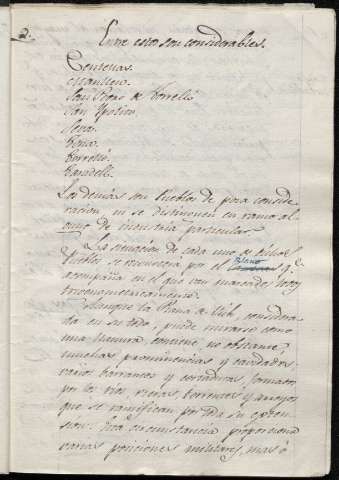 2.
Entre estos son considerables.
Centellas.
Manlleu.
San Pedro de Torrelló
San Ypolito
Seva.
Tona.
Torrelló.
Taradell.
Los demás son Pueblos de poca conside
racion ni se distinguen en ramo al
guno de industria particular.
La situacion de cada uno de dichos
Pueblos se encuentra por el Plano q.e
acompaña en el que van marcados
trigonometricamente.
Aunque la Plana de Vich, considera
da en su todo, puede mirarse como
una llanura, contiene no obstante
muchas prominencias y cavidades,
varios barrancos y cortaduras, formados
por los rios, rieras, torrentes y arroyos
que se ramifican por toda su exten
sion. Esta circunstancia proporciona
varias posiciones militares, mas ó